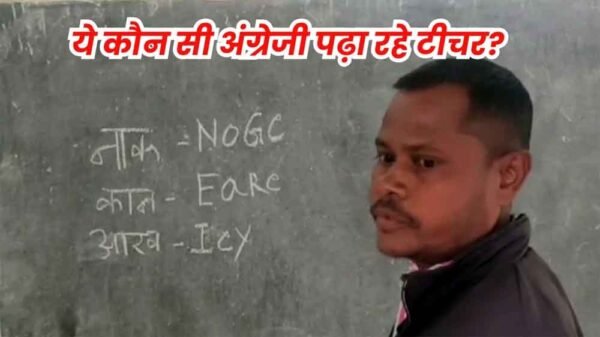 ये कौन सी अंग्रेजी पढ़ा रहे टीचर?
नाक = NOGC
कान - Eare
आख - Icy